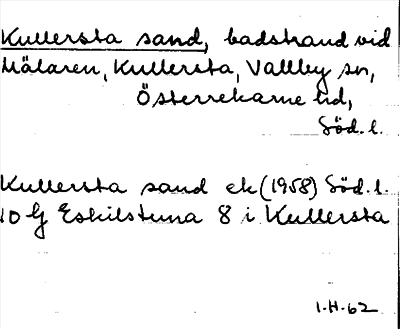 Kullersta sand, badstrand vid
Mälaren, Kullersta, Vallby sn,
Österrekarne hd,
Söd. l.
Kullersta sand ek (1958) Söd. l.
10 G Eskilstuna 8 i Kullersta
1.H.62